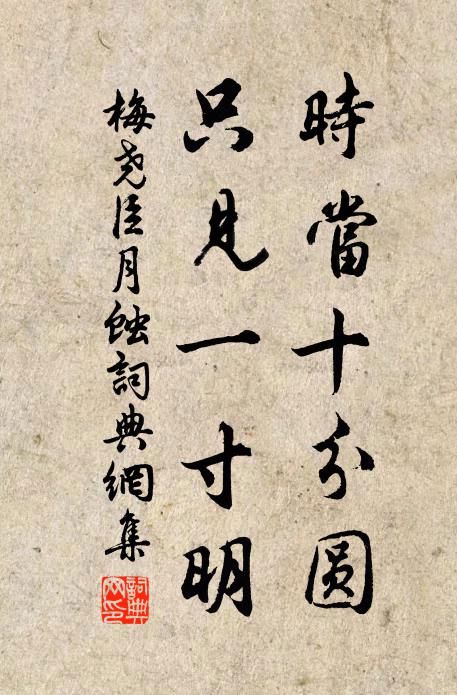 時當十分圓
只見一寸明
梅堯臣月蝕詞典網集
詞典網印